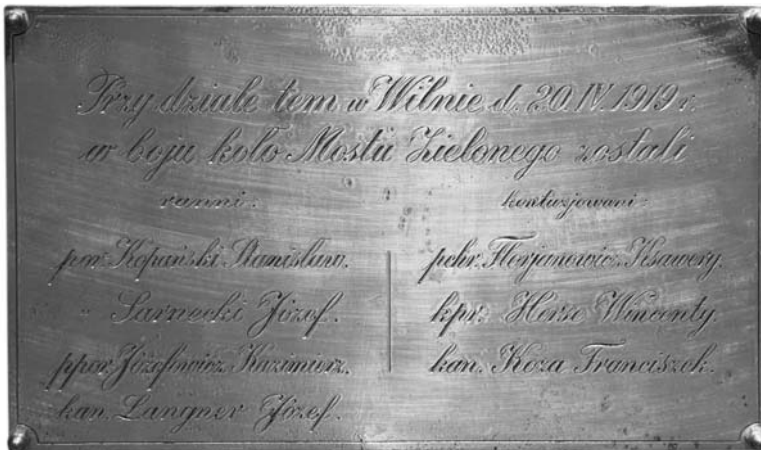 Przy dziale tem w Wilnie d. 20.IV.1919 r.
w boju koło Mostu Zielonego zostali
ranni:
por. Kopański Stanisław.
" Sarnecki Józef.
ppor. Józefowicz Kazimierz.
kan. Langner Józef.
kontuzjowani:
pchr. Florjanowicz Ksawery.
kpr. Herse Wincenty.
kan. Koza Franciszek.